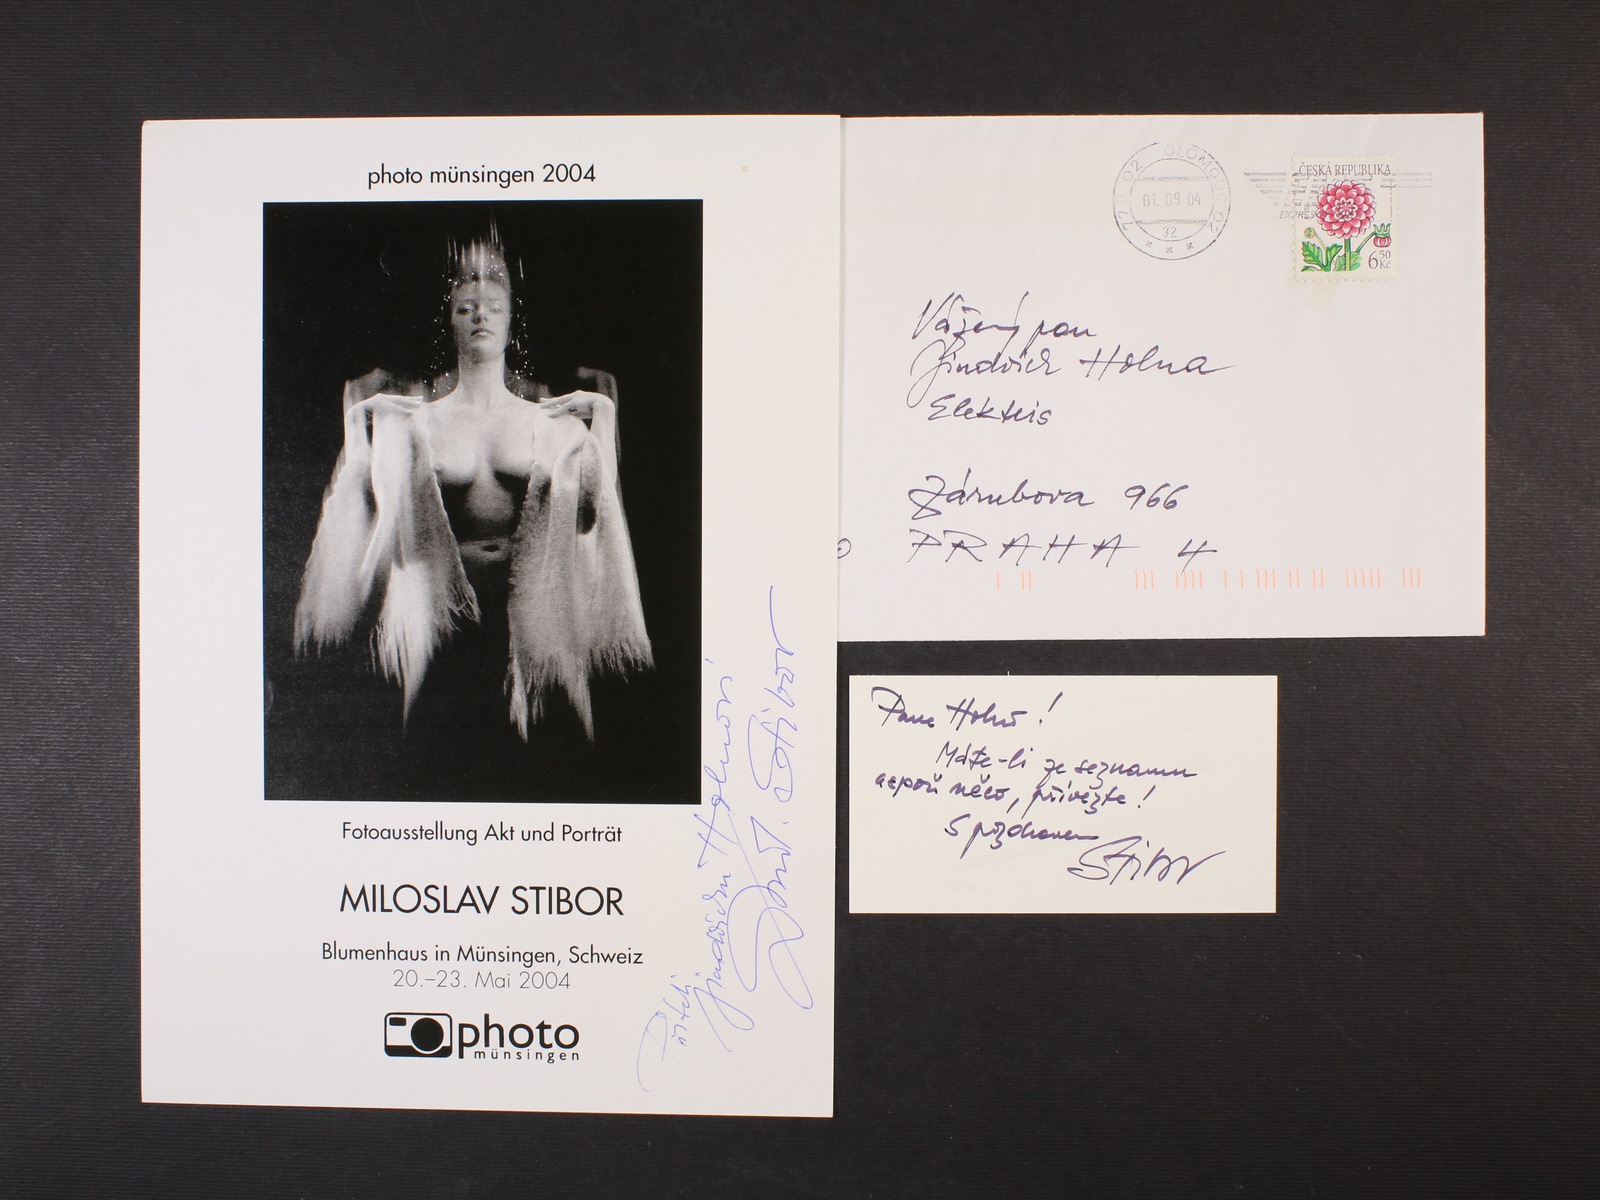 photo münsingen 2004
Fotoausstellung Akt und Porträt
MILOSLAV STIBOR
Blumenhaus in Münsingen, Schweiz
20.–23. Mai 2004
photo
münsingen
Příteli
Jindrovi Holnovi
Stibor
OLOMOUC 02
772 02
01.09.04
32
ČESKÁ REPUBLIKA
6 50 Kč
Vážený pan
Jindřich Holna
Zárubova 966
PRAHA 4
Pane Holno!
Máte-li ze seznamu
aspoň něco, přivezte!
S pozdravem
Stibor